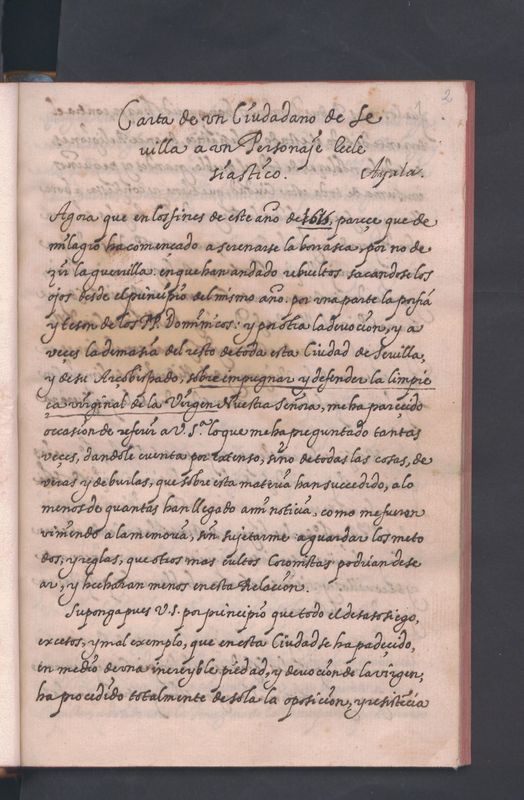 2
Carta de vn Ciudadano de Se
uilla a vn Personaje Ecle
siastico. Ayala.
Agora que en los fines de este año de 1616, parece que de
milagro ha comencado a serenarse la borrasca, por no de
zir la guerrilla en que han andado rebueltos sacandose los
ojos desde el principio del mismo año. por vna parte la porfiá
y teson de los PP. Dominicos: y por otra la deuoción, y a
veces la demasia del resto de toda esta Ciudad de Seuilla,
y de su Arcobispado, sobre impugnar y defender la limpie
ca virginal de la Virgen Nuestra Señora, me ha parecido
occasion de referir a V. Sª. lo que me ha preguntado tantas
veces, dandole cuenta por extenso, sino de todas las cosas, de
veras y de burlas, que sobre esta materia han succedido, a lo
menos de quantas han llegado a mi noticia, como me fueren
viniendo a la memoria, sin sujetarme a guardar los meto
dos, y reglas, que otros mas cultos Coronistas podrian dese
ar, y hecharan menos en esta Relación.
Suponga pues V.S. por principio que todo el desasosiego,
excesos, y mal exemplo, que en esta Ciudad se ha padecido,
en medio de vna increyble piedad, y deuoción de la virgen,
ha procedido totalmente de sola la oposicion, y resistecia